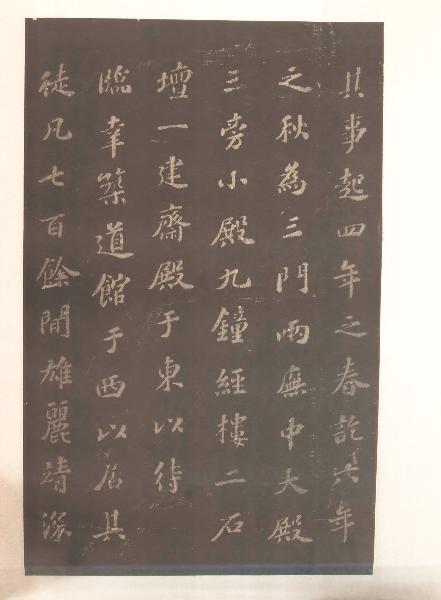 其事起四年之春訖六年
之秋為三門兩廡中大殿
三旁小殿九鐘經樓二石
壇一建齋殿于東以待
臨幸築道館于西以居其
徒凡七百餘間雄麗靖深